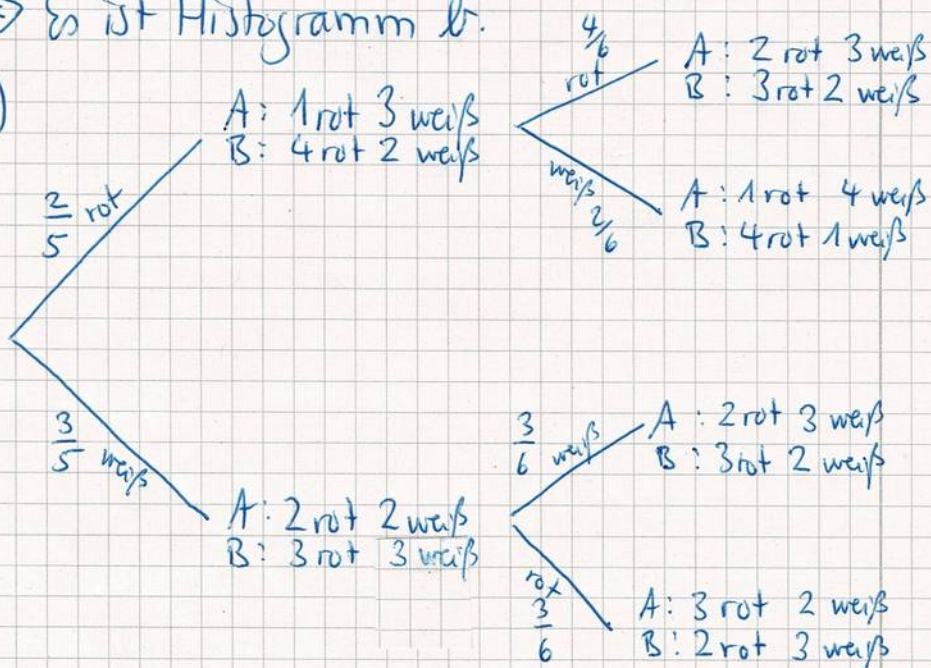 Es ist Histogramm b.
)
2/5 rot
A: 1 rot 3 weiß
B: 4 rot 2 weiß
4/6
rot
A: 2 rot 3 weiß
B: 3 rot 2 weiß
weiß
2/6
A: 1 rot 4 weiß
B: 4 rot 1 weiß
3/5 weiß
A: 2 rot 2 weiß
B: 3 rot 3 weiß
3/6 weiß
A: 2 rot 3 weiß
B: 3 rot 2 weiß
rot
3/6
A: 3 rot 2 weiß
B: 2 rot 3 weiß